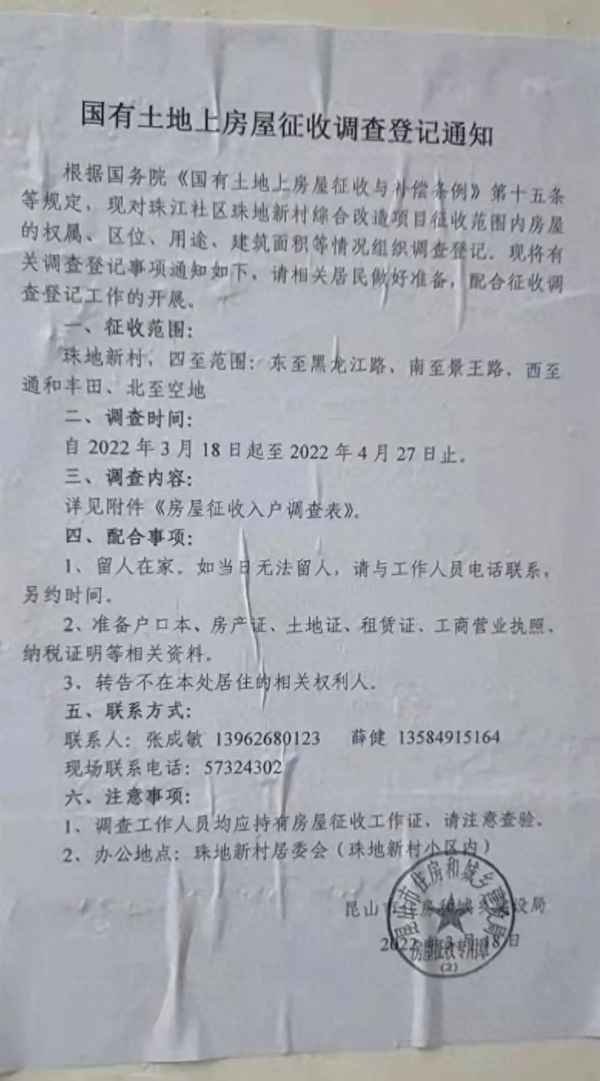 国有土地上房屋征收调查登记通知
根据国务院《国有土地上房屋征收与补偿条例》第十五条
等规定，现对珠江社区珠地新村综合改造项目征收范围内房屋
的权属、区位、用途、建筑面积等情况组织调查登记。现将有
关调查登记事项通知如下，请相关居民做好准备，配合征收调
查登记工作的开展。
一、征收范围：
珠地新村，四至范围：东至黑龙江路、南至景王路、西至
通和丰田、北至空地
二、调查时间：
自 2022 年 3 月 18 日起至 2022 年 4 月 27 日止。
三、调查内容：
详见附件《房屋征收入户调查表》。
四、配合事项：
1、留人在家。如当日无法留人，请与工作人员电话联系，
另约时间。
2、准备户口本、房产证、土地证、租赁证、工商营业执照、
纳税证明等相关资料。
3、转告不在本处居住的相关权利人。
五、联系方式：
联系人：张成敏 13962680123 薛健 13584915164
现场联系电话：57324302
六、注意事项：
1、调查工作人员均应持有房屋征收工作证，请注意查验。
2、办公地点：珠地新村居委会（珠地新村小区内）
昆山市住房和城乡建设局
2022 年 3 月 18 日
昆山市住房和城乡建设局
房屋征收专用章
(2)